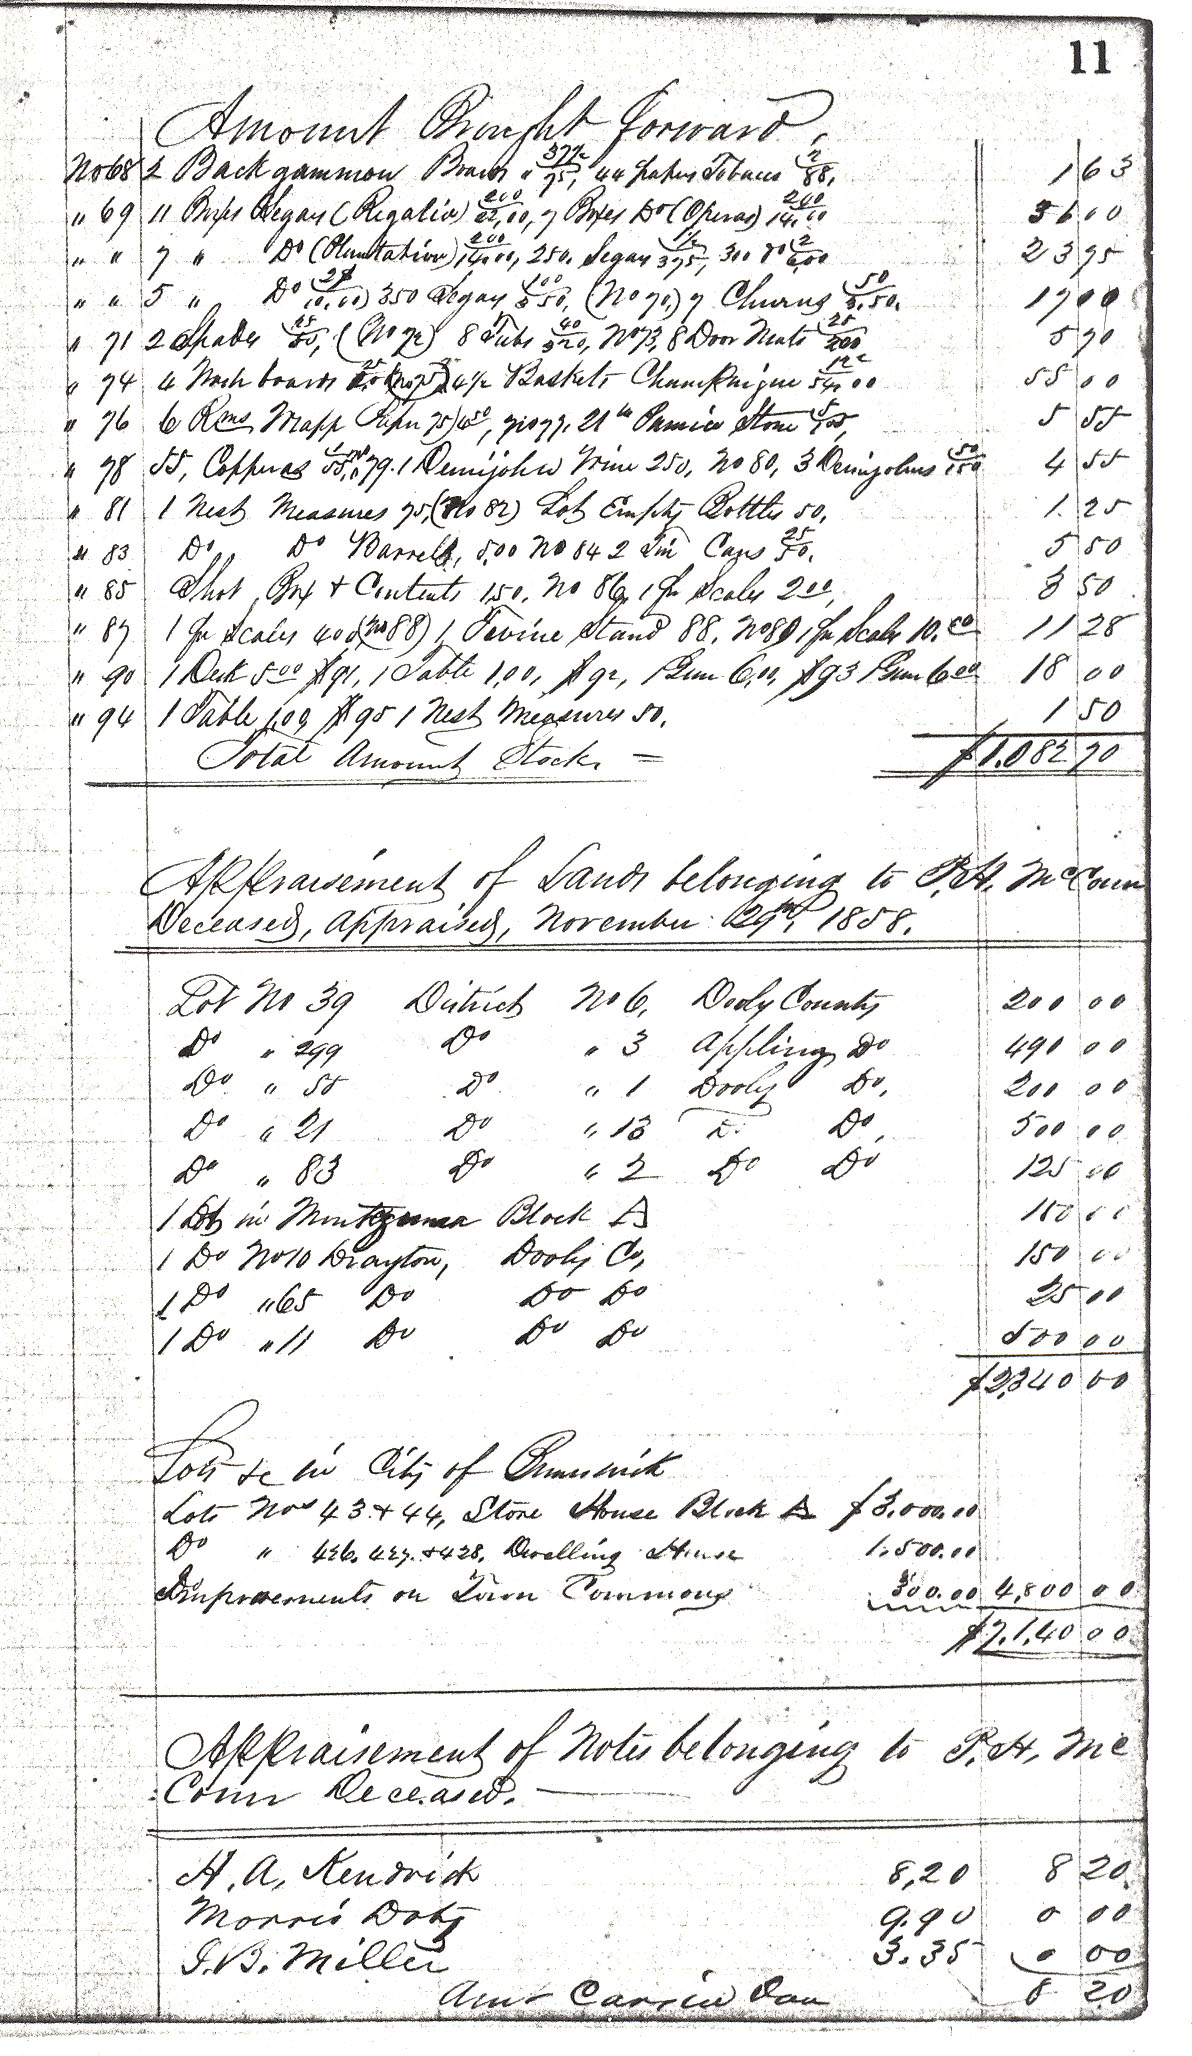 11
Amount Brought forward,
No 68 2 Back gammon Boards " 37½ 75, 44 papers Tobacco 2 88, 1 63
" 69 11 Boxes Segars (Regalia) 200 22,00, 7 Boxes Do (Operas) 200 14,00 36 00
" " 7 " Do (Plantation) 200 14,00, 250 Segars 1½ 375, 300 Do 2 6,00 23 75
" " 5 " Do 2 10,00) 350 Segars 100 3 50, (No 70,) 7 Churns 50 3.50. 17 00
" 71 2 Spades 25 50, (No 72) 8 Tubs 40 320, No 73, 8 Door Matts 25 200 5 70
" 74 4 Wash boards 25 (No 75) 4½ Baskets Champaigne 12 54,00 55 00
" 76 6 Rms Wrapp Paper 75) 450, No 77, 21 lbs Pumice Stone 5 105, 5 55
" 78 55, Copperas 55, No 79. 1 Demijohn Wine 250, No 80, 3 Demijohns 50 150 4 55
" 81 1 Nest Measures 75, (No 82) Lot Empty Bottles 50, 1.25
" 83 Do Do Barrels, 5.00 No 84 2 Tin Cans 25 50. 5 50
" 85 Shot, Box & Contents 1,50, No 86, 1 pr Scales 2 00, 3 50
" 87 1 pr Scales 400 (No 88) 1 Stand 88. No 89 1 pr Scales 10.50 11 28
" 90 1 Desk 5 00 91, 1 Table 1,00, 92, 6,00, 93 6 00 18 00
" 94 1 Table 1,00, 95 1 Nest Measures 50. 1 50
Total Amount Stock = $1.082 70
Appraisement of Lands belonging to P.H. McConn
Deceased, appraised, November 29th, 1858.
Lot No 39 District No 6, Dooly County 200 00
Do " 299 Do " 3 Appling Do 490 00
Do " 58 Do " 1 Dooly Do, 200 00
Do " 21 Do " 13 Do Do, 500 00
Do " 83 Do " 2 Do Do 125 00
1 Lot in Montezuma Block A 150 00
1 Do No 10 Drayton, Dooly Co, 150 00
1 Do " 65 Do Do Do 25 00
1 Do " 11 Do Do Do 500 00
$2,340 00
Lots &c in City of Brunswick
Lots Nos 43 & 44, Store House Block A $3.000.00
Do " 426. 427. & 428. Dwelling House 1.500.00
Improvements on Town Commons 300.00 4,800 00
$7,140 00
Appraisement of Notes belonging to P. H. Mc
Conn Deceased.
H. A. Kendrick 8,20 8 20
Morris Doty 9.90 0 00
J. B. Miller 3.35 0 00
Amt Carried Over 8 20